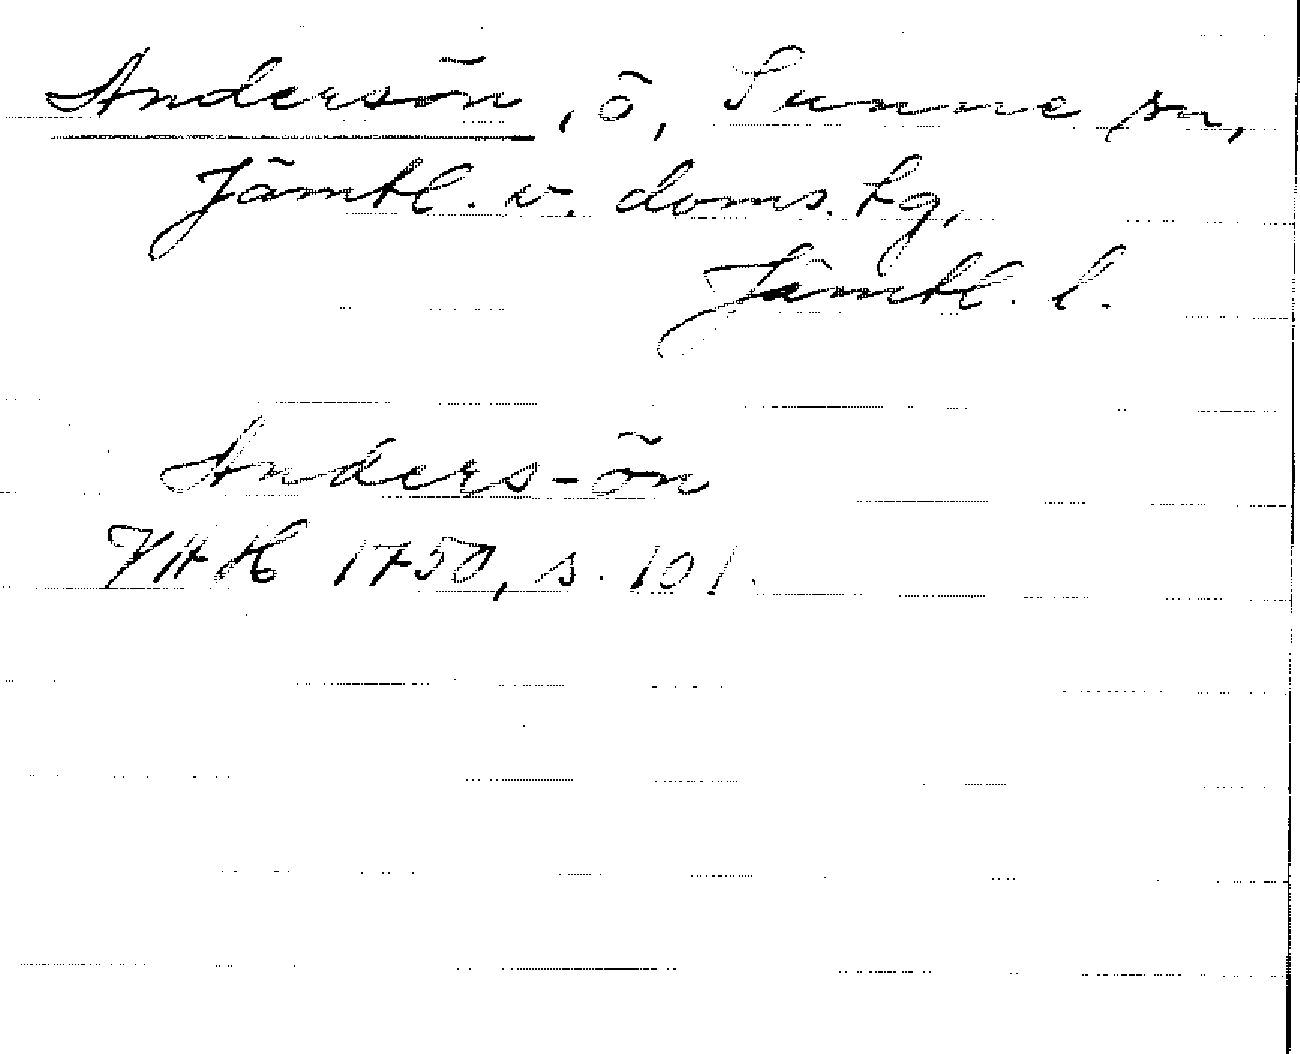 Andersön, ö, Sunne sn,
Jämtl. v. doms. tg,
Jämtl. l.
Anders-ön
VHAH 1750, s. 101.